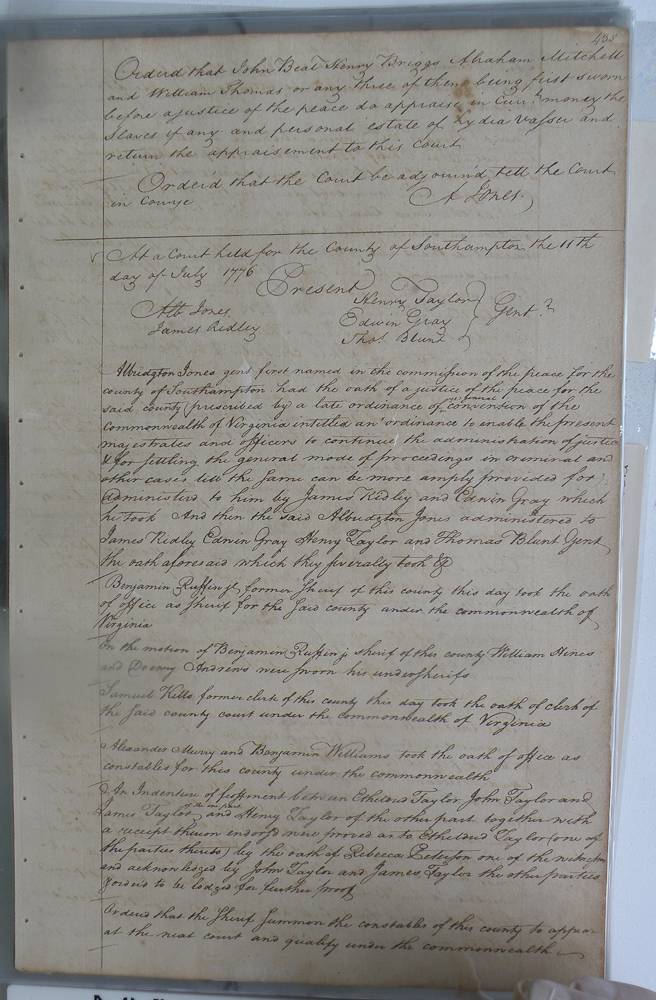 438
Orderd that John Beal Henry Briggs Abraham Mitchell
and William Thomas or any three of them being first sworn
before a justice of the peace do appraise in Curr.t money the
slaves if any and personal estate of Lydia Vasser and
return the appraisement to this Court
Order'd that the Court be adjourn'd till the Court
in Course A Jones.
At a Court held for the County of Southampton the 11th
day of July 1776
Present
Henry Taylor
Alb Jones Edwin Gray Gent.
James Ridley Tho.s Blunt
Albridgton Jones gent first named in the commission of the peace for the
county of Southampton had the oath of a justice of the peace for the
said county (prescribed by a late ordinance of convension of the
commonwealth of Virginia intitled an ordinance to enable the present
majestrates and officers to continue the administration of justice
& for settling the general mode of proceedings in criminal and
other cases till the same can be more amply provided for)
administerd to him by James Ridley and Edwin Gray which
he took And then the said Albridgton Jones administered to
James Ridley Edwin Gray Henry Taylor and Thomas Blunt Gent
the oath aforesaid which they severally took &
Benjamin Ruffin jr. former Sherif of this county this day took the oath
of office as Sherif for the said county under the commonwealth of
Virginia
On the motion of Benjamin Ruffin j sherif of this county William Hines
and Andrews were sworn his undersherifs
Samuel Kello former clerk of this county this day took the oath of clerk of
the said county court under the commonwealth of Virginia
Alexander Murry and Benjamin Williams took the oath of office as
constables for this county under the commonwealth
An Indenture of feoffment between Etheldred Taylor John Taylor and
James Taylor of the one part and Henry Taylor of the other part together with
a receipt thereon endorsd were proved as to Etheldred Taylor (one of
the parties thereto) by the oath of Rebecca Peterson one of the witnesses
and acknowledged by John Taylor and James Taylor the other parties
forord to be lodged for further proof
Orderd that the Sherif summon the constables of this county to appear
at the next court and qualify under the commonwealth